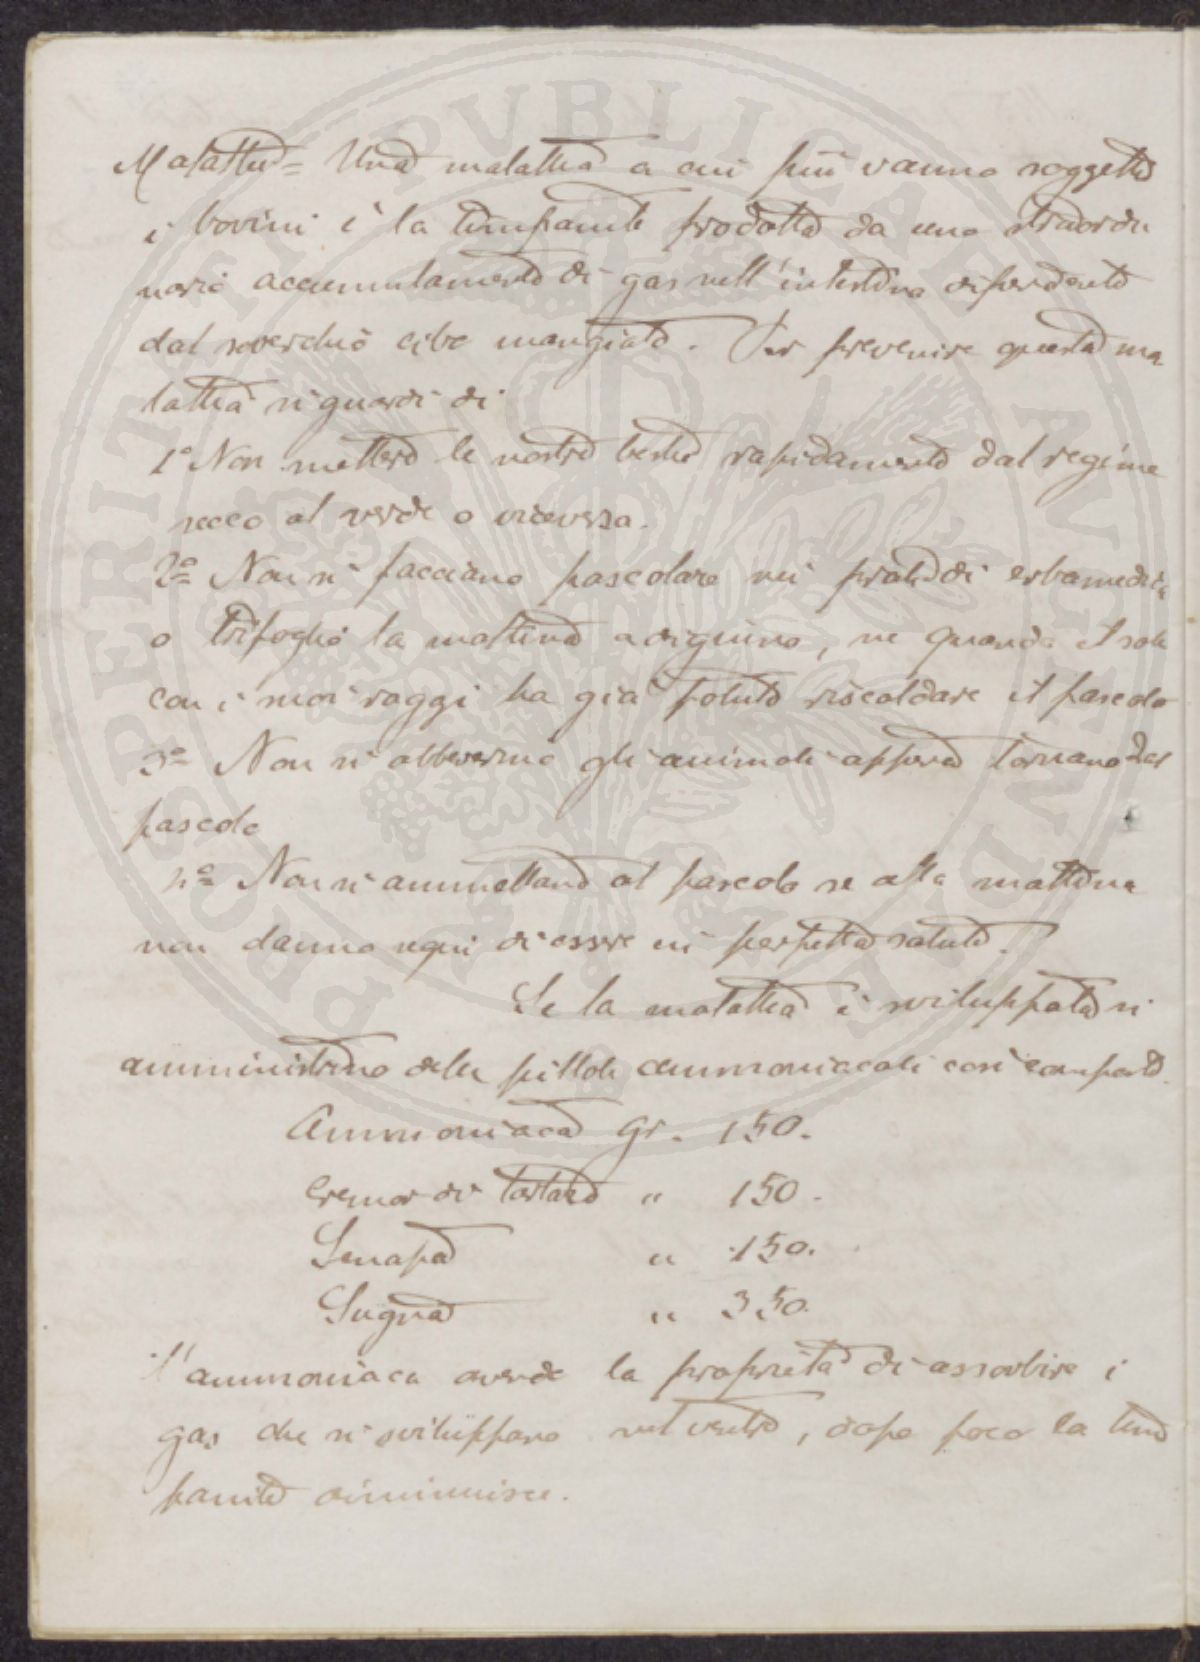 Malattie = Una malattia a cui più vanno soggetti
i bovini è la timpanite prodotta da uno straordi
nario accumulamento di gas nell'intestino dipendente
dal soverchio cibo mangiato. Per prevenire questa ma
lattia si guardi di
1° Non mettere le nostre bestie rapidamente dal regime
secco al verde o viceversa.
2° Non si facciano pascolare nei prati di erbamedica
o trifoglio la mattina a digiuno, ne quando il sole
con i suoi raggi ha già potuto riscaldare il pascolo
3° Non si abbeverino gli animali appena tornano dal
pascolo
4° Non si ammettano al pascolo se alla mattina
non danno segni di essere in perfetta salute.
Se la malattia è sviluppata si
amministrino delle pillole ammoniacali così composte.
Ammoniaca gr. 150.
Cremor di tartaro " 150.
Senapa " 150.
Sugna " 350.
l'ammoniaca avende la proprietà di assorbire i
gas che si sviluppano nel ventre, dopo poco la tim
panite diminuisce.
PERITATI PUBLICAE AUGENDAE